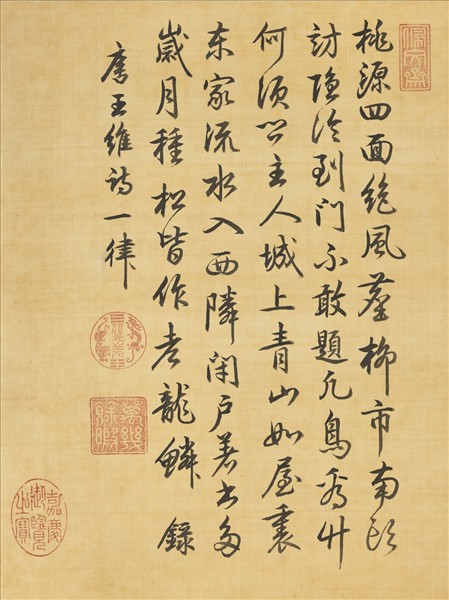 桃源四面絶風塵柳市南頭
訪隱淪到門不敢題凡鳥看竹
何須問主人城上青山如屋裏
東家流水入西隣閉戶著書多
歲月種松皆作老龍鱗 錄
唐王維詩一律
萬幾餘暇
嘉慶御覽之寶